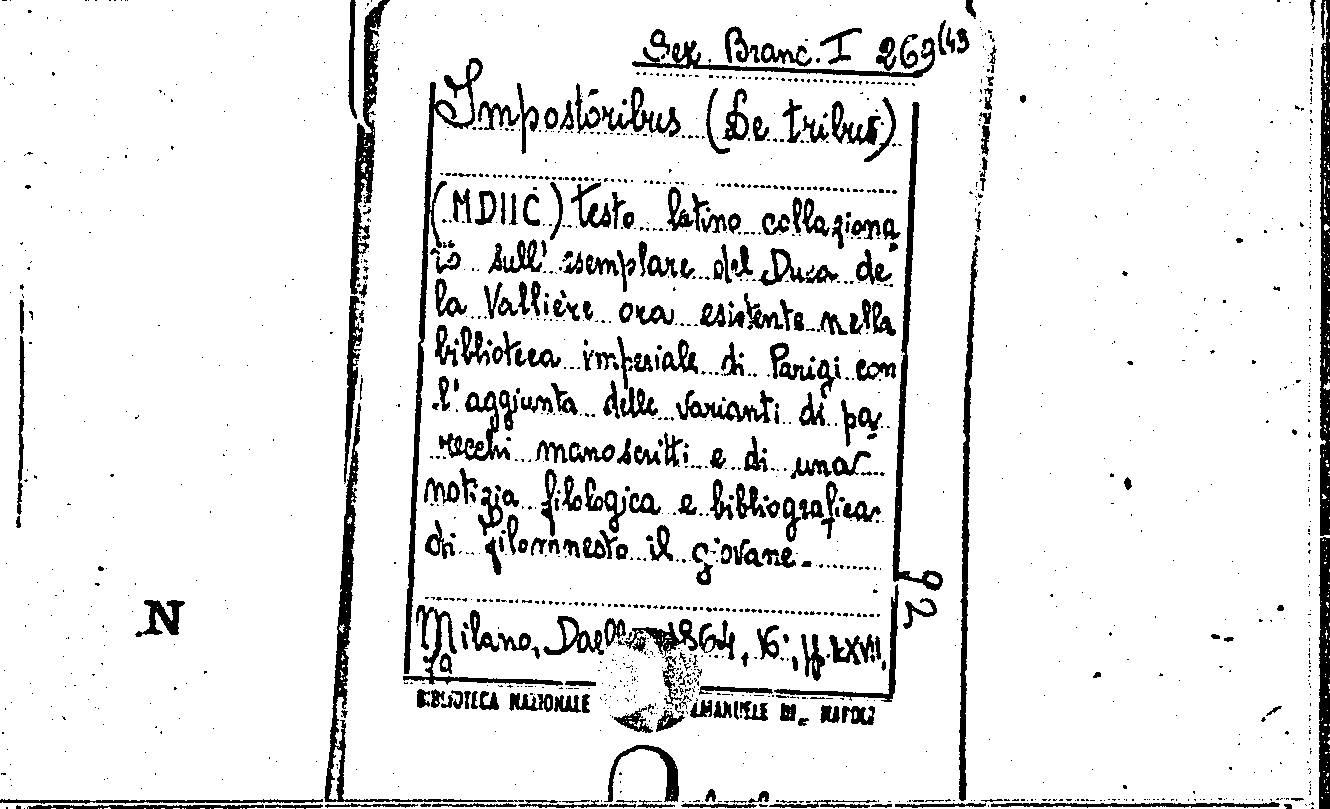 Sez. Branc. I 269(43
Impostoribus (De tribus)
(MDIIC) testo latino collaziona
to sull' esemplare del Duca de
la Vallière ora esistente nella
biblioteca imperiale di Parigi con
l'aggiunta delle varianti di pa
recchi manoscritti e di una
notizia filologica e bibliografica
di Filomnesto il giovane.
92
N
Milano, Daelli 1864, 16°, pp. LXVII,
79
BIBLIOTECA NAZIONALE EMANUELE DI NAPOLI